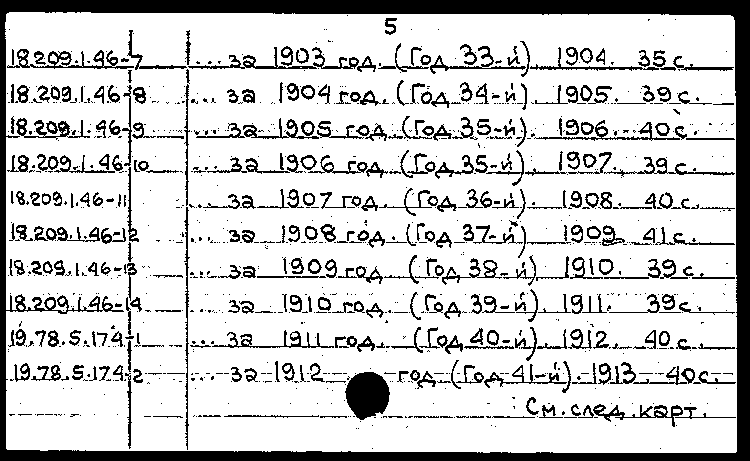 5
18.209.1.46-7 ... за 1903 год. (Год 33-й). 1904. 35 с.
18.209.1.46-8 ... за 1904 год. (Год 34-й). 1905. 39 с.
18.209.1.46-9 ... за 1905 год (Год 35-й). 1906. 40 с.
18.209.1.46-10 ... за 1906 год (Год 35-й). 1907. 39 с.
18.209.1.46-11 ... за 1907 год. (Год 36-й). 1908. 40 с.
18.209.1.46-12 ... за 1908 год. (Год 37-й) 1909 41 с.
18.209.1.46-13 ... за 1909 год. (Год 38-й) 1910. 39 с.
18.209.1.46-14 ... за 1910 год. (Год 39-й). 1911. 39 с.
19.78.5.174-1 ... за 1911 год. (Год 40-й). 1912. 40 с.
19.78.5.174-2 ... за 1912 год (Год 41-й). 1913. 40 с.
См. след. карт.